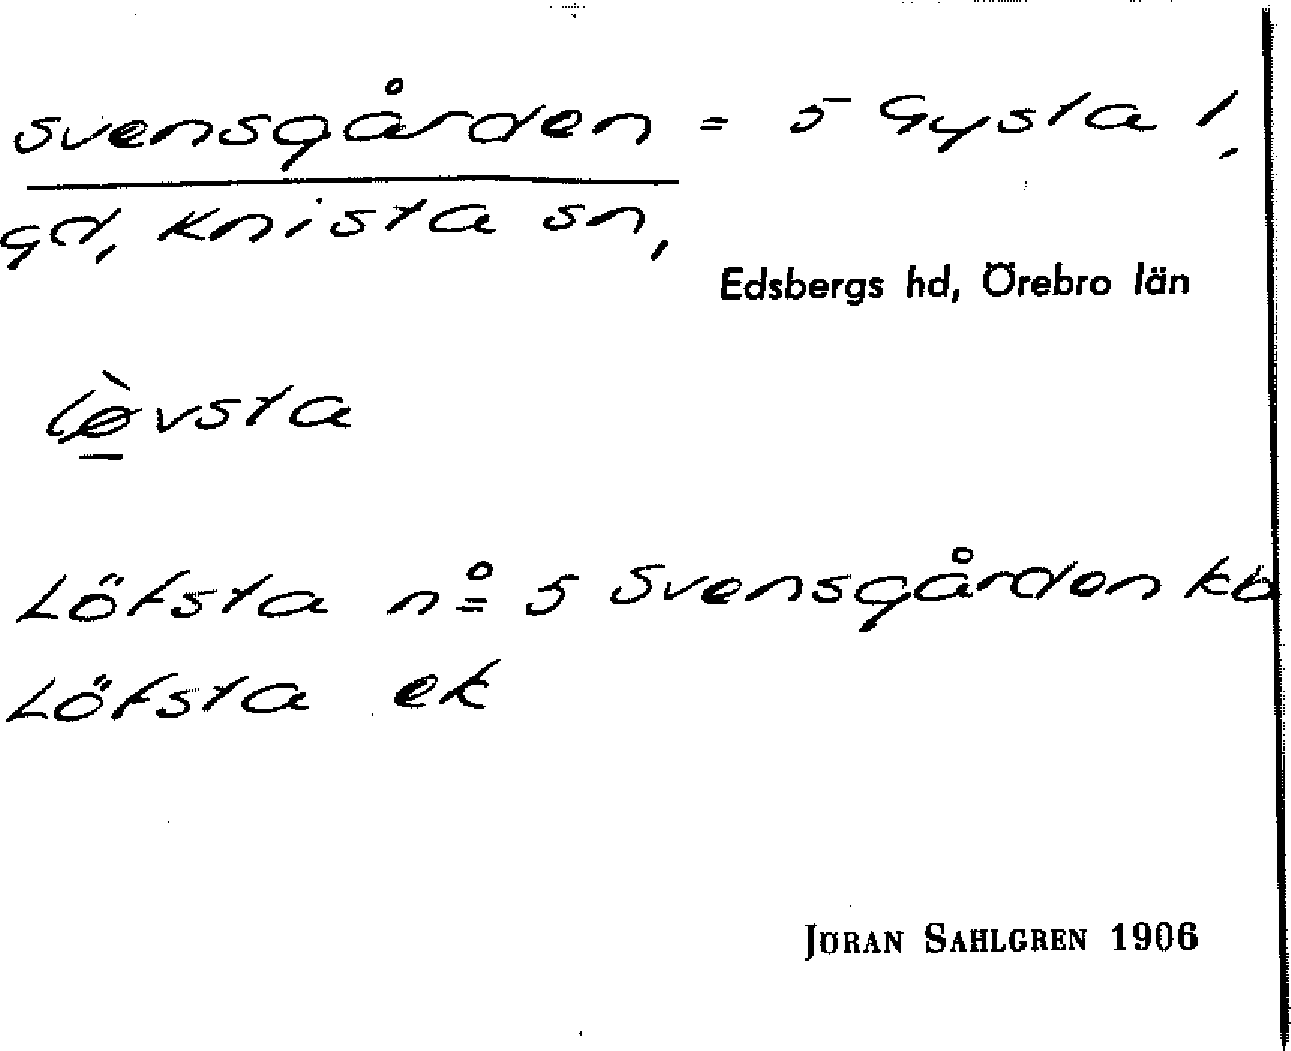 Svensgården = 5 Gysta 1,
gd, Knista sn,
Edsbergs hd, Örebro län
lø̀vsta
Löfsta nº 5 Svensgården kb
Löfsta ek
JÖRAN SAHLGREN 1906